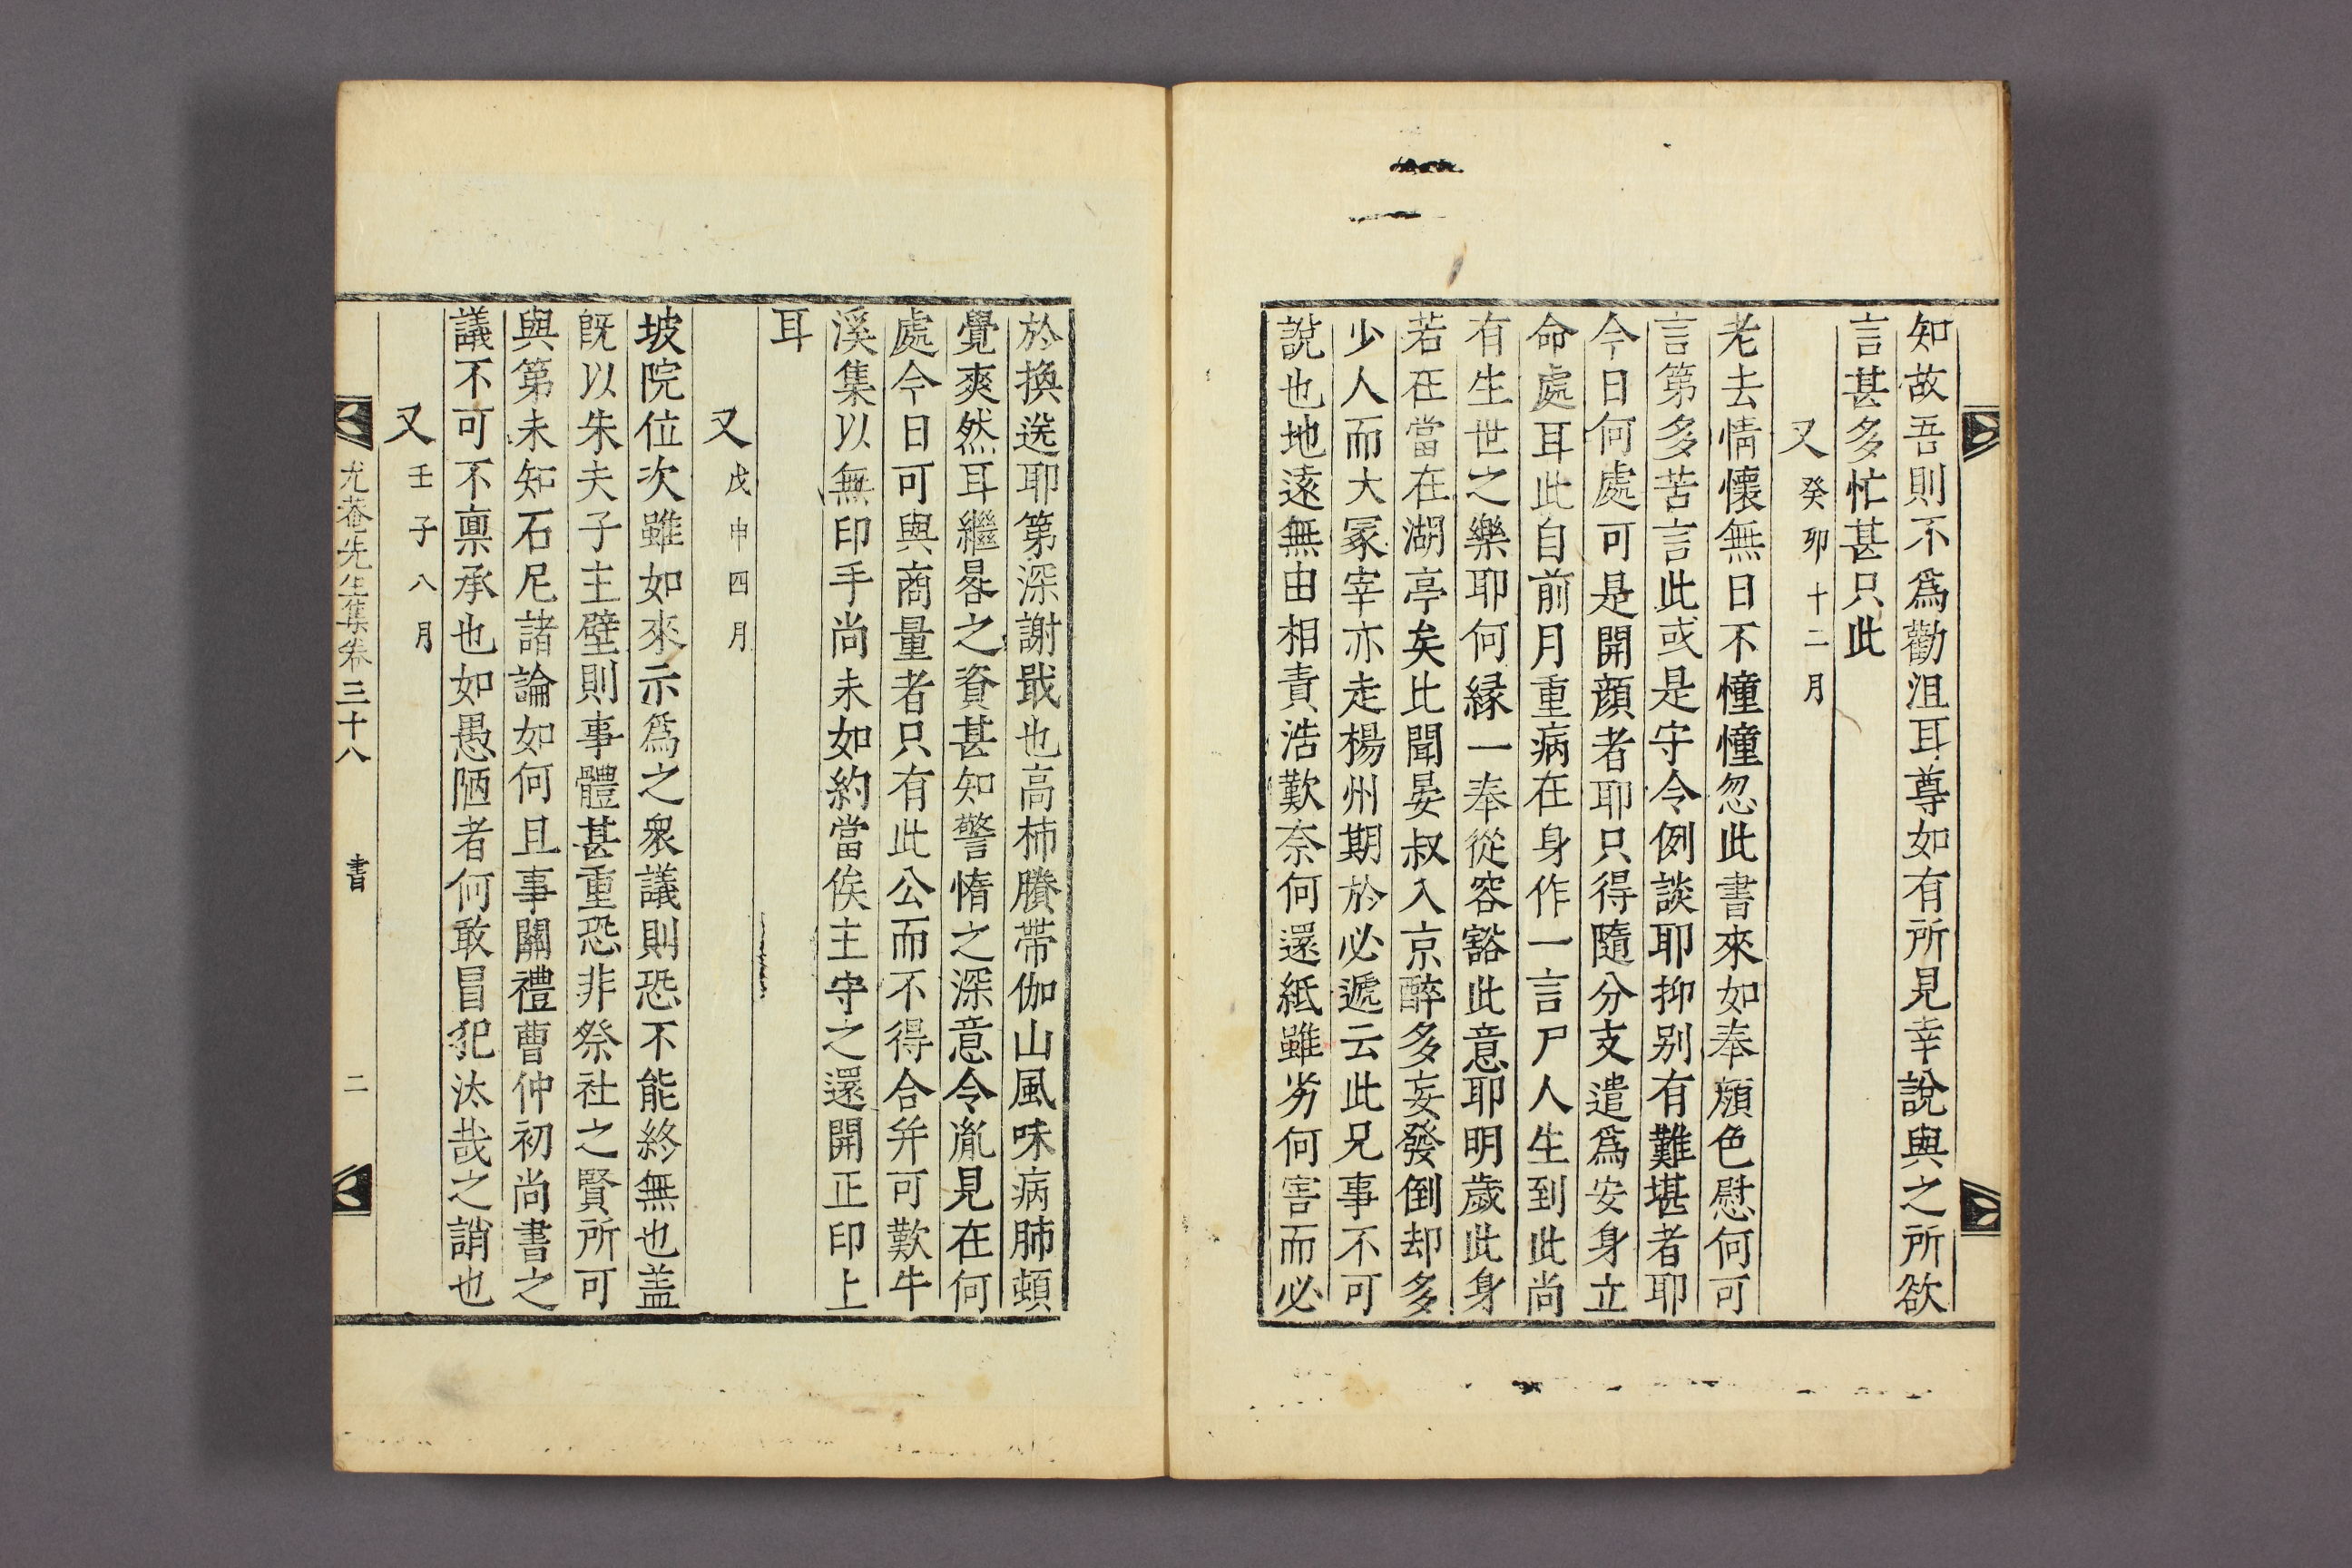 知故吾則不爲勸沮耳尊如有所見幸說與之所欲
言甚多忙甚只此
又癸卯十二月
老去情懷無日不憧憧忽此書來如奉顔色慰何可
言第多苦言此或是守令例談耶抑别有難堪者耶
今日何處可是開顔者耶只得隨分支遣爲安身立
命處耳此自前月重病在身作一言尸人生到此尚
有生世之樂耶何縁一奉從容豁此意耶明歲此身
若在當在湖亭矣比聞晏叔入京醉多妄發倒却多
少人而大冢宰亦走楊州期於必遞云此兄事不可
說也地遠無由相責浩歎奈何還紙雖劣何害而必
於換送耶第深謝戢也高柿賸帶伽山風味病肺頓
覺爽然耳繼晷之資甚知警惰之深意令胤見在何
處今日可與商量者只有此公而不得合并可歎牛
溪集以無印手尚未如約當俟主守之還開正印上
耳
又戊申四月
坡院位次雖如來示爲之衆議則恐不能終無也盖
旣以朱夫子主壁則事體甚重恐非祭社之賢所可
與第未知石尼諸論如何且事關禮曹仲初尚書之
議不可不禀承也如愚陋者何敢冒犯汰哉之誚也
又壬子八月
尤菴先生集卷三十八 書 二